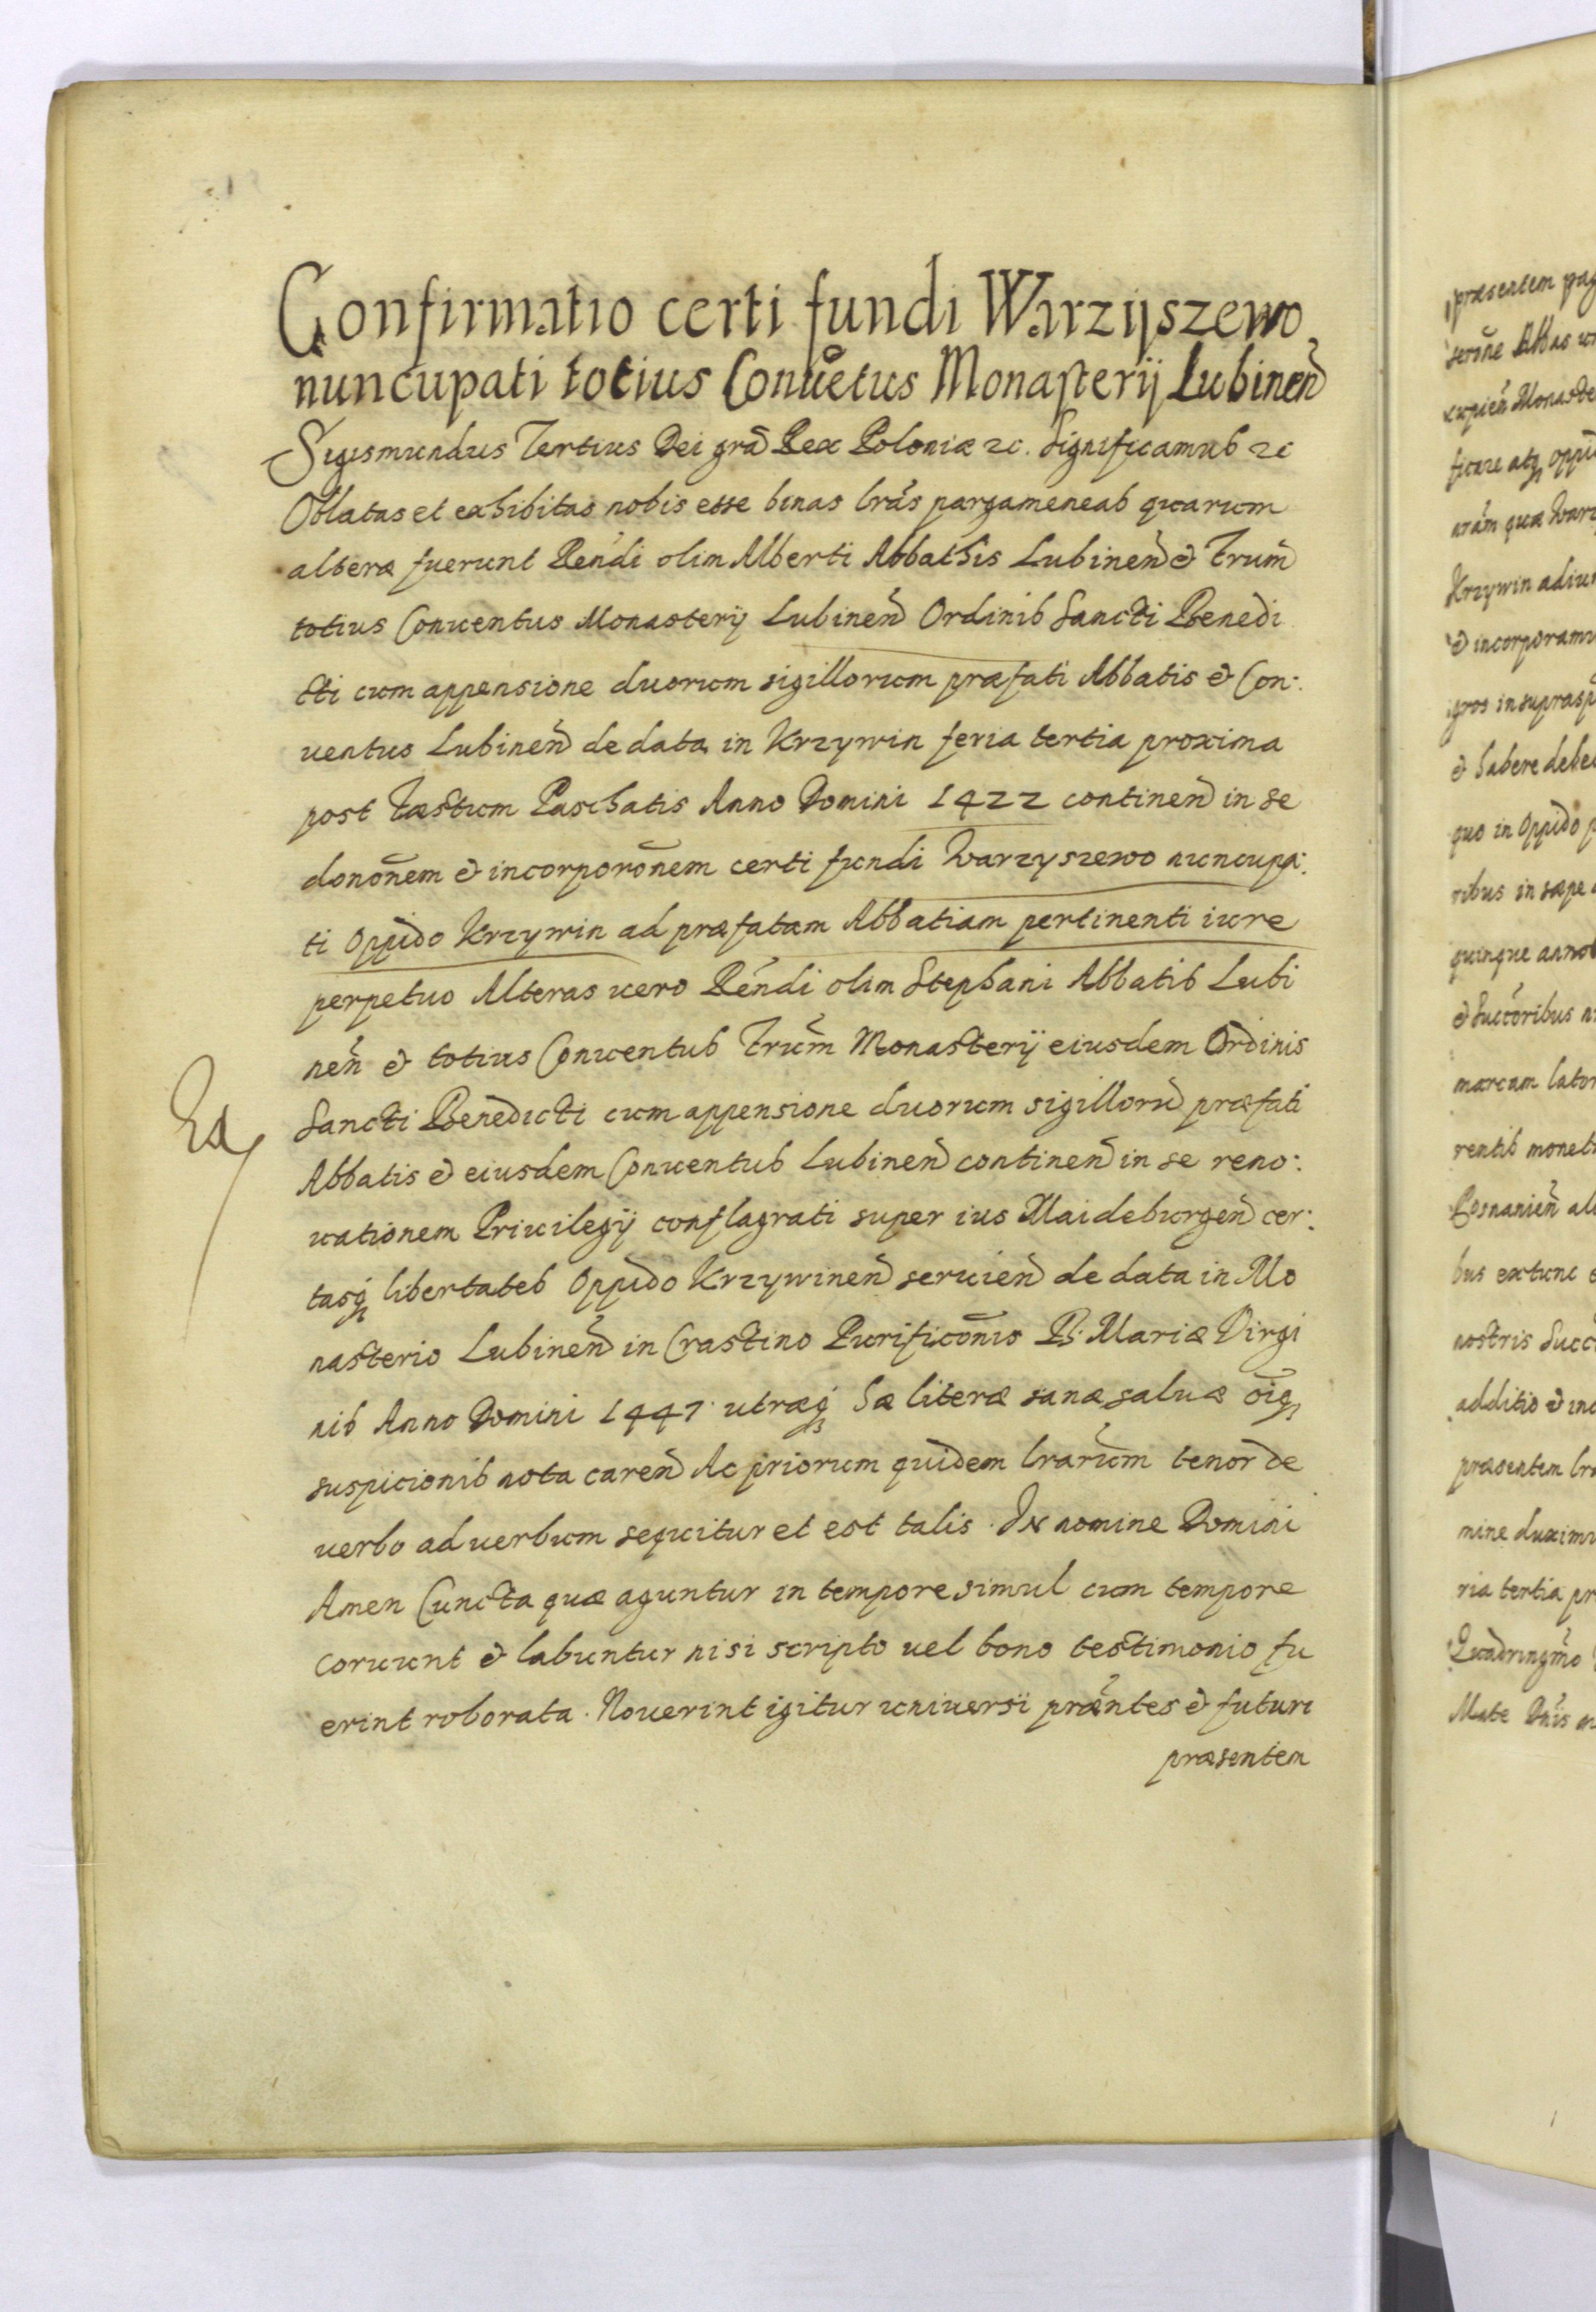 Confirmatio certi fundi Warzÿszewo
nuncupati totius Conuẽtus Monasterÿ Lubineñ
Sigismundus Tertius Dei grã Rex Poloniæ &c. Significamus &c
Oblatas et exhibitas nobis esse binas lrãs pargameneas quarum
alteræ fuerunt Rẽndi olim Alberti Abbathis Lubineñ & Frum̃
totius Conuentus Monasterÿ Lubineñ Ordinis Sancti Benedi
cti cum appensione duorum sigillorum præfati Abbatis & Con:
uentus Lubineñ de data in Krzywin feria tertia proxima
post Fæstum Paschatis Anno Domini 1422 contineñ in se
donõnem & incorporõnem certi fundi Warzyszewo nuncupa:
ti Oppido Krzywin ad præfatam Abbatiam pertinenti iure
perpetuo Alteras uero Rẽndi olim Stephani Abbatis Lubi
neñ & totius Conuentus Frum̃ Monasterÿ eiusdem Ordinis
Sancti Benedicti cum appensione duorum sigillorũ præfati
Abbatis & eiusdem Conuentus Lubineñ contineñ in se reno:
uationem Priuilegÿ conflagrati super ius Maideburgeñ cer:
tasq̃ libertates Oppido Krzywineñ seruieñ de data in Mo
nasterio Lubineñ in Crastino Purificõnis B: Mariæ Virgi
nis Anno Domini 1447 utræq̃ hæ literæ sanæ saluæ õiq̃
suspicionis nota careñ Ac priorum quidem lrarum̃ tenor de
uerbo ad uerbum sequitur et est talis. In nomine Domini
Amen Cuncta quæ aguntur in tempore simul cum tempore
coruunt & labuntur nisi scripto uel bono testimonio fu
erint roborata. Nouerint igitur uniuersi præñtes & futuri
præsentem
præsentem pag
Abbas
Monaste
ficare atq̃ oppid
Krzywin adiun
& incorporamu
& habere debe
quo in Oppido p
ribus in sæpe
quinque annos
& Succõribus
marcam
rentis monet
Posnanieñ
bus extunc
nostris Succ
additio & inc
præsentem lr
mine duximu
ria tertia pr